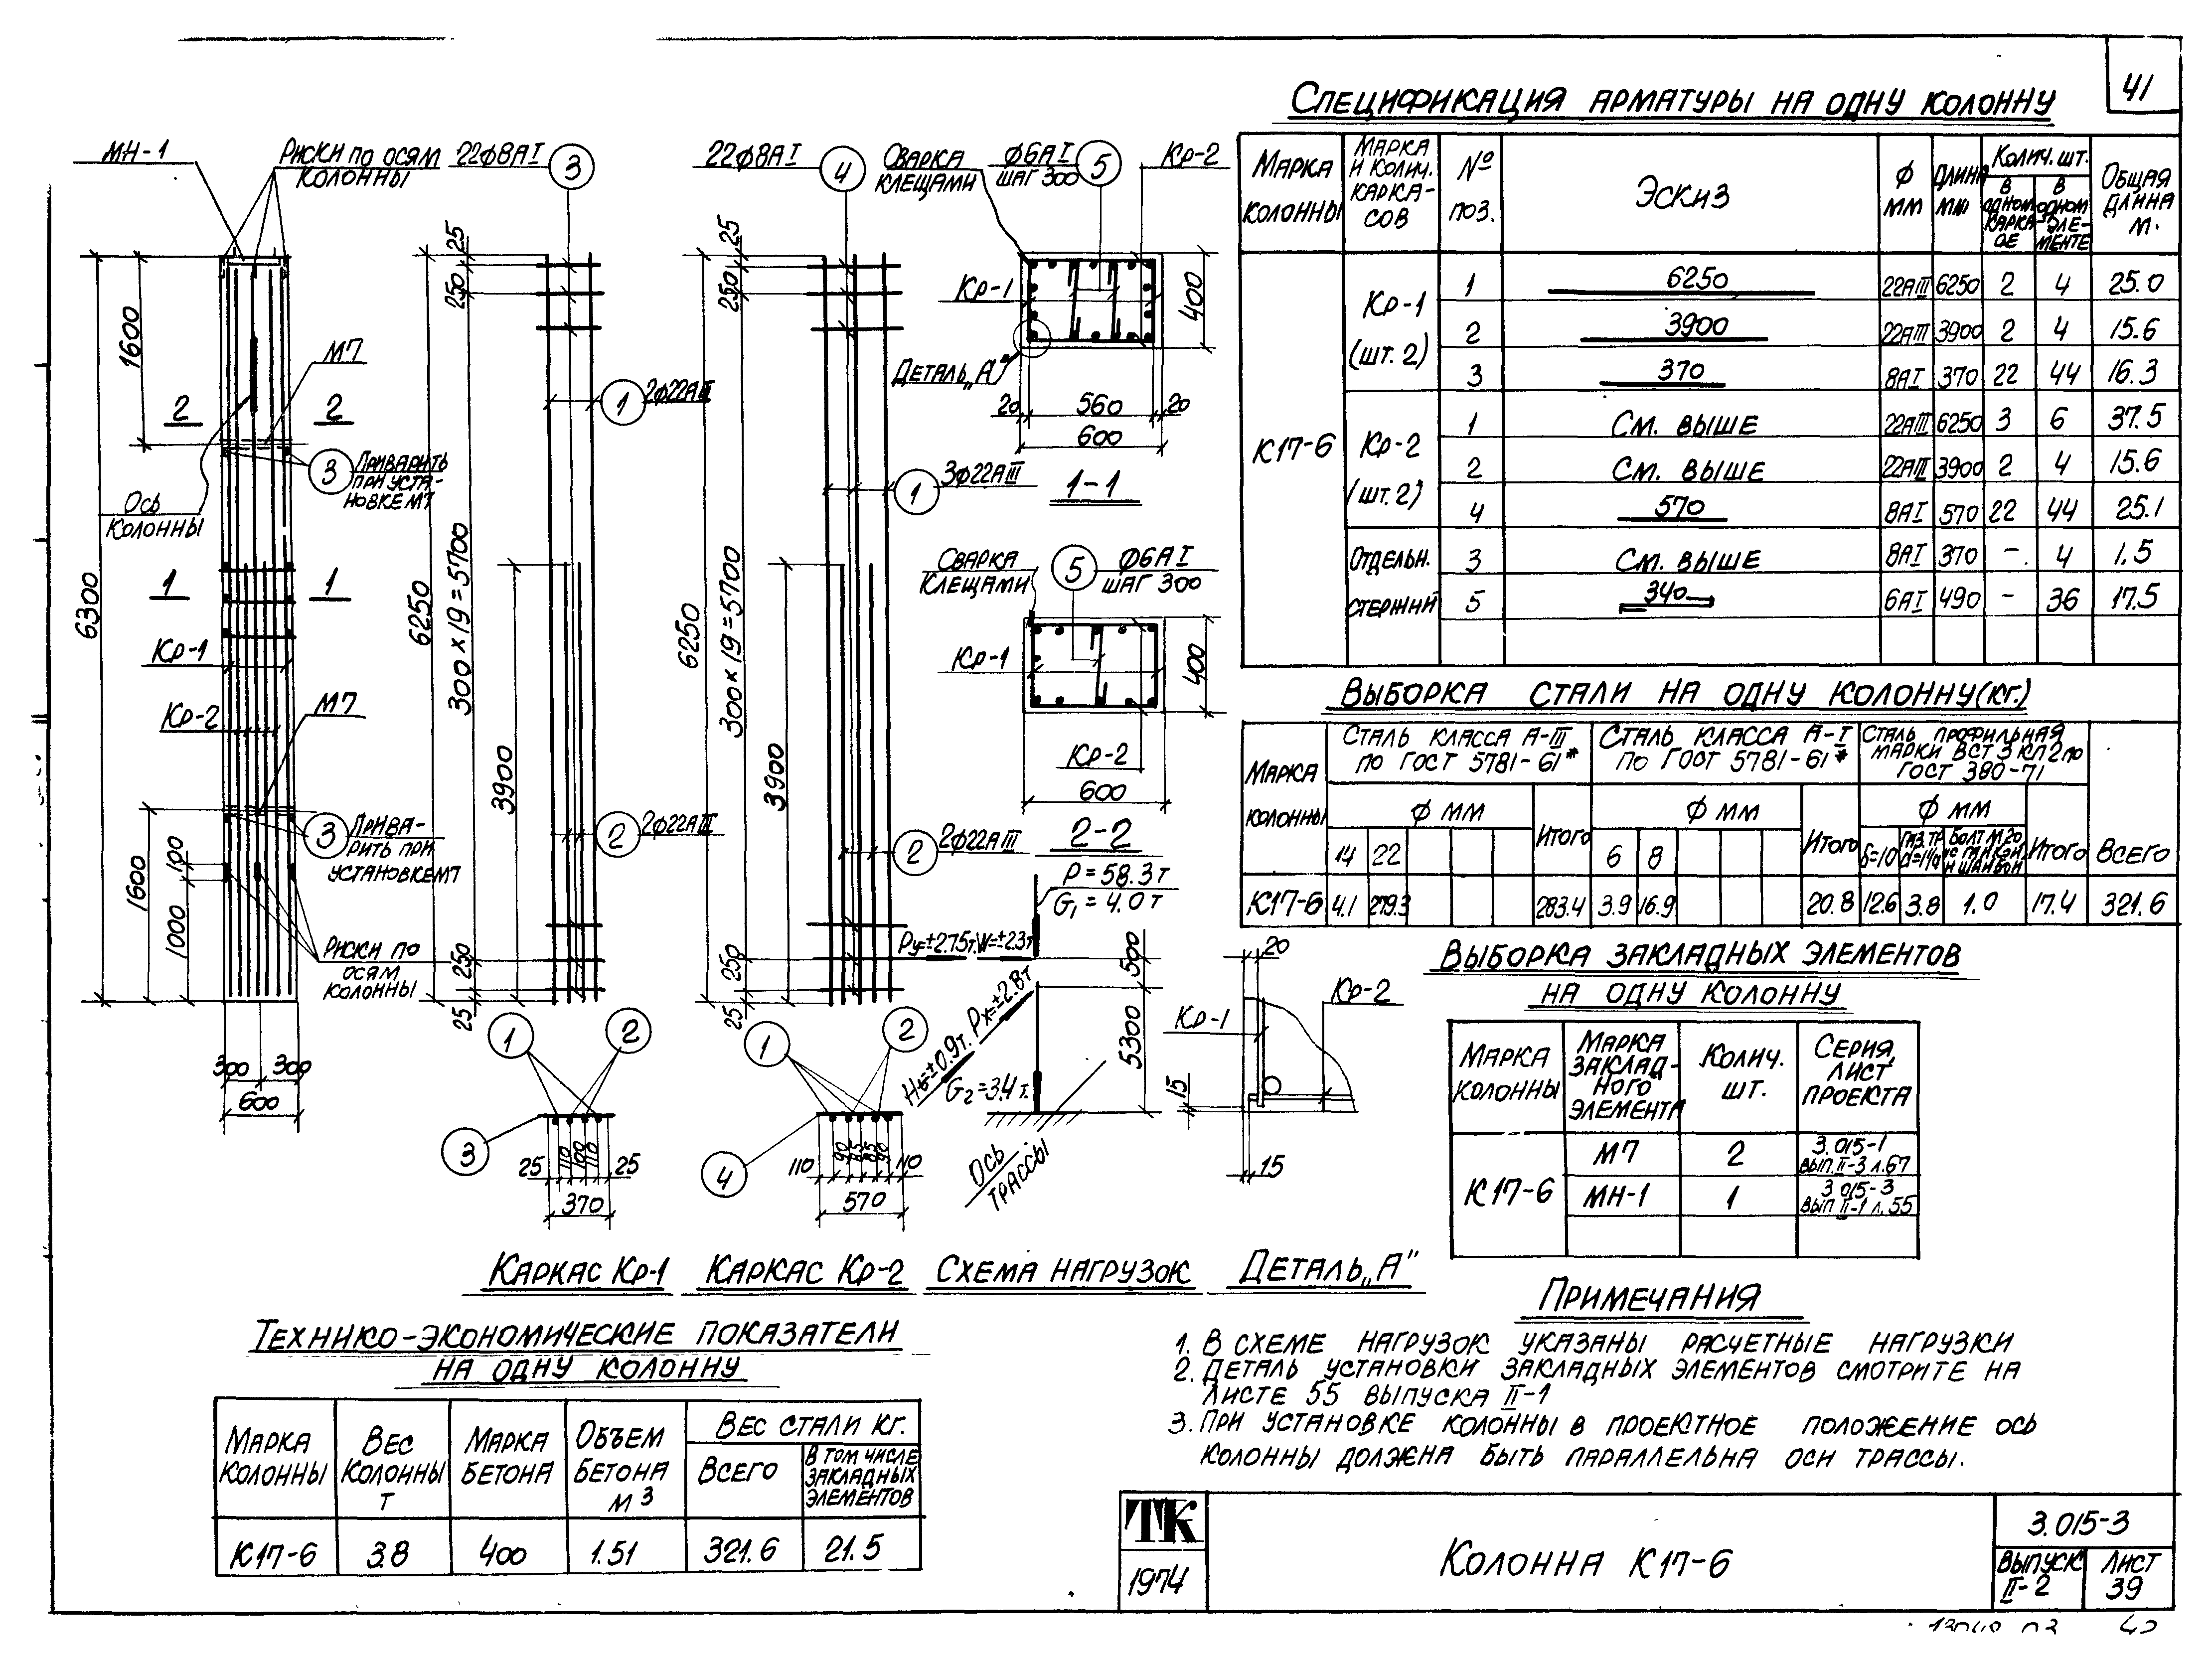 41
СПЕЦИФИКАЦИЯ АРМАТУРЫ НА ОДНУ КОЛОННУ
МАРКА КОЛОННЫ
МАРКА И КОЛИЧ. КАРКАСОВ
№ ПОЗ.
ЭСКИЗ
Ф ММ
ДЛИНА ММ
КОЛИЧ. ШТ.
В ОДНОМ КАРКАСЕ
В ОДНОМ ЭЛЕМЕНТЕ
ОБЩАЯ ДЛИНА М.
К17-6
КР-1 (ШТ. 2)
1 6250 22АIII 6250 2 4 25.0
2 3900 22АIII 3900 2 4 15.6
3 370 8АI 370 22 44 16.3
КР-2 (ШТ. 2)
1 СМ. ВЫШЕ 22АIII 6250 3 6 37.5
2 СМ. ВЫШЕ 22АIII 3900 2 4 15.6
4 570 8АI 570 22 44 25.1
ОТДЕЛЬН. СТЕРЖНИ
3 СМ. ВЫШЕ 8АI 370 – 4 1.5
5 340 6АI 490 – 36 17.5
ВЫБОРКА СТАЛИ НА ОДНУ КОЛОННУ (КГ.)
МАРКА КОЛОННЫ
СТАЛЬ КЛАССА А-III ПО ГОСТ 5781-61*
СТАЛЬ КЛАССА А-I ПО ГОСТ 5781-61*
СТАЛЬ ПРОФИЛЬНАЯ МАРКИ ВСТ 3 КП2 ПО ГОСТ 380-71
Ф ММ ИТОГО Ф ММ ИТОГО Ф ММ ИТОГО ВСЕГО
14 22 6 8 δ=10
БОЛТ М20
К17-6 4.1 279.3 283.4 3.9 16.9 20.8 12.6 3.8 1.0 17.4 321.6
ВЫБОРКА ЗАКЛАДНЫХ ЭЛЕМЕНТОВ
НА ОДНУ КОЛОННУ
МАРКА КОЛОННЫ
МАРКА ЗАКЛАДНОГО ЭЛЕМЕНТА
КОЛИЧ. ШТ.
СЕРИЯ, ЛИСТ ПРОЕКТА
К17-6
М7 2 3.015-1 ВЫП. II-3 Л.67
МН-1 1 3.015-3 ВЫП II-1 Л.55
ПРИМЕЧАНИЯ
1. В СХЕМЕ НАГРУЗОК УКАЗАНЫ РАСЧЕТНЫЕ НАГРУЗКИ
2. ДЕТАЛЬ УСТАНОВКИ ЗАКЛАДНЫХ ЭЛЕМЕНТОВ СМОТРИТЕ НА
ЛИСТЕ 55 ВЫПУСКА II-1
3. ПРИ УСТАНОВКЕ КОЛОННЫ В ПРОЕКТНОЕ ПОЛОЖЕНИЕ ОСЬ
КОЛОННЫ ДОЛЖНА БЫТЬ ПАРАЛЛЕЛЬНА ОСИ ТРАССЫ.
ТК
1974
КОЛОННА К17-6
3.015-3
ВЫПУСК II-2
ЛИСТ 39
МН-1
РИСКИ ПО ОСЯМ
КОЛОННЫ
6300
1600
М7
2 2
3 ПРИВАРИТЬ
ПРИ УСТА-
НОВКЕ М7
ОСЬ
КОЛОННЫ
1 1
КР-1
КР-2
М7
3 ПРИВА-
РИТЬ ПРИ
УСТАНОВКЕ М7
1600
100
1000
РИСКИ ПО
ОСЯМ
КОЛОННЫ
300 300
600
22Ф8АI 3
25
250
6250
300×19=5700
3900
1 2Ф22АIII
2 2Ф22АIII
250
25
1 2
3
25 110 100 110 25
370
КАРКАС КР-1
22Ф8АI 4
25
250
6250
300×19=5700
3900
1 3Ф22АIII
2 2Ф22АIII
250
25
1 2
4
110 90 85 85 90 110
570
КАРКАС КР-2
СВАРКА
КЛЕЩАМИ
Ф6АI
ШАГ 300
5
КР-2
КР-1
400
ДЕТАЛЬ „А"
20 560 20
600
1-1
СВАРКА
КЛЕЩАМИ
5
Ф6АI
ШАГ 300
КР-1
400
КР-2
600
2-2
Р=58.3Т
G1=4.0Т
Ру=±2.75Т. W=±2.3Т
500
Рх=±2.8Т
±0.9Т.
G2=3.4Т.
5300
ОСЬ
ТРАССЫ
СХЕМА НАГРУЗОК
20
КР-1
КР-2
15
15
ДЕТАЛЬ „А"
ТЕХНИКО-ЭКОНОМИЧЕСКИЕ ПОКАЗАТЕЛИ
НА ОДНУ КОЛОННУ
МАРКА КОЛОННЫ
ВЕС КОЛОННЫ Т
МАРКА БЕТОНА
ОБЪЕМ БЕТОНА М3
ВЕС СТАЛИ КГ.
ВСЕГО
В ТОМ ЧИСЛЕ ЗАКЛАДНЫХ ЭЛЕМЕНТОВ
К17-6 3.8 400 1.51 321.6 21.5